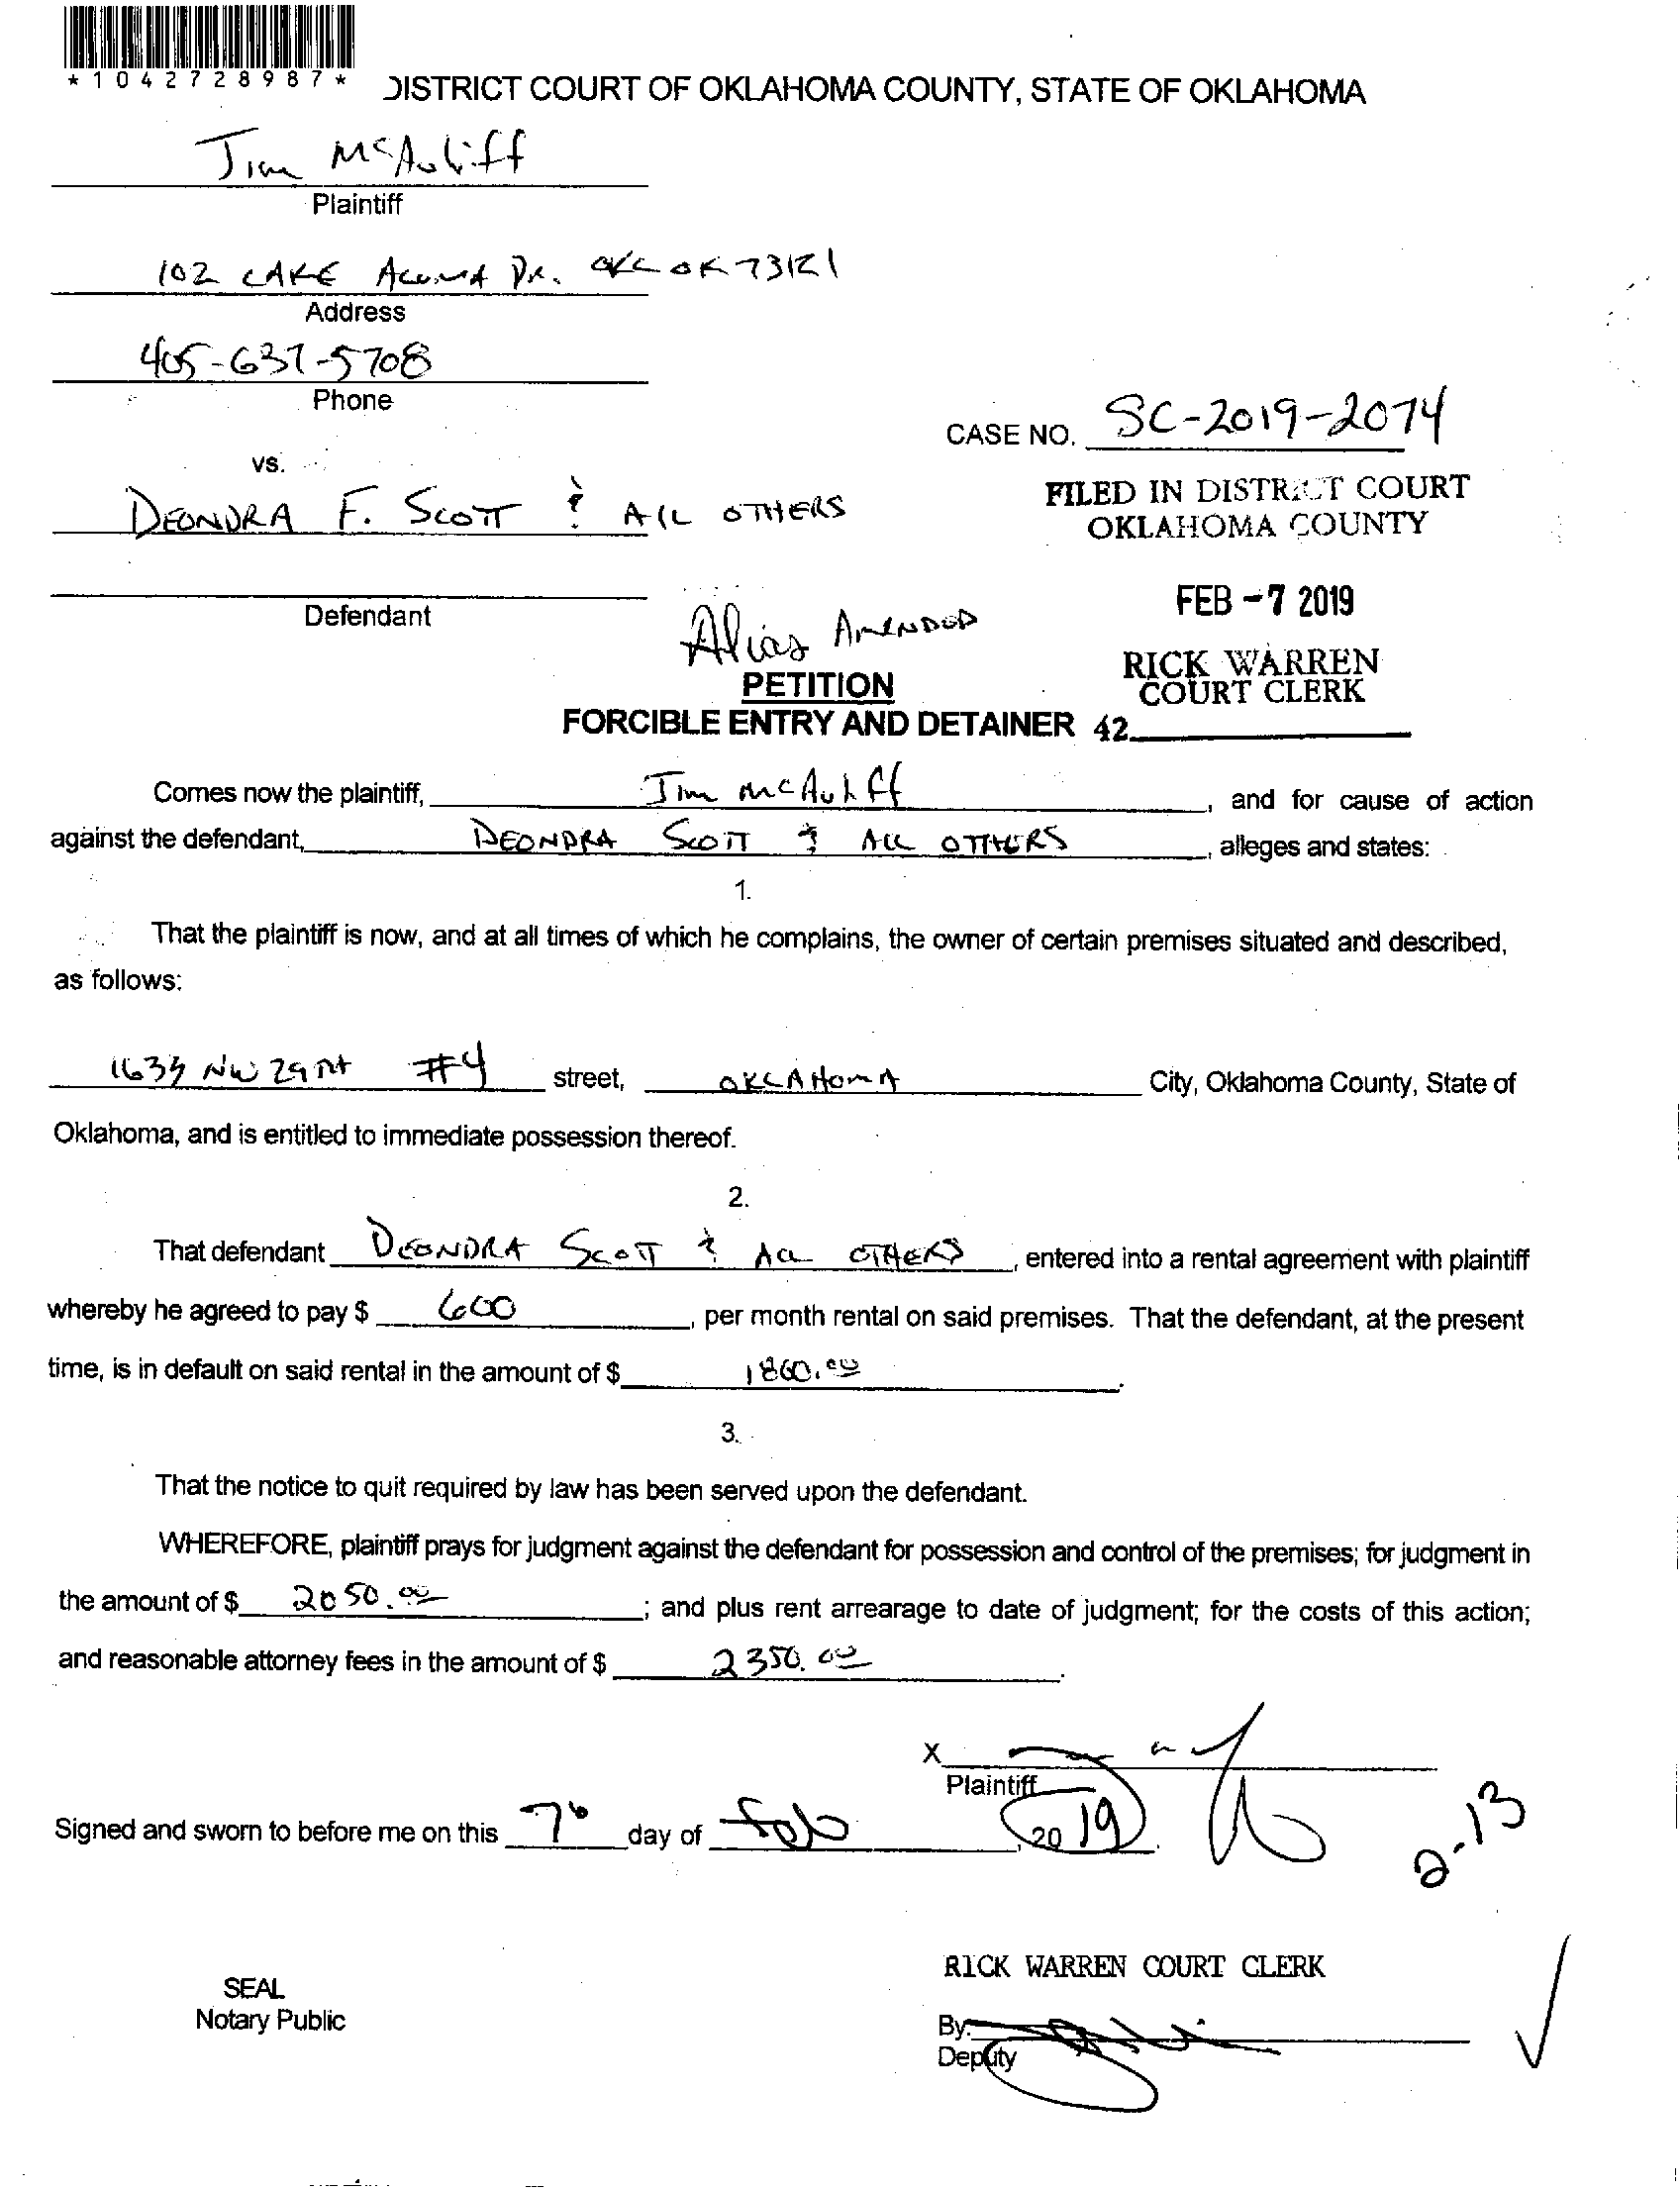 *1042728987*
DISTRICT COURT OF OKLAHOMA COUNTY, STATE OF OKLAHOMA
Jim McAuliff
Plaintiff
102 LAKE ALUMA DR. OKC OK 73121
Address
405-637-5708
Phone
CASE NO. SC-2019-2074
vs.
DEONDRA F. SCOTT & ALL OTHERS
FILED IN DISTRICT COURT
OKLAHOMA COUNTY
FEB -7 2019
Defendant
Alias AMENDED
RICK WARREN
COURT CLERK
PETITION
FORCIBLE ENTRY AND DETAINER 42
Comes now the plaintiff, Jim McAuliff, and for cause of action
against the defendant, DEONDRA SCOTT & ALL OTHERS, alleges and states:
1.
That the plaintiff is now, and at all times of which he complains, the owner of certain premises situated and described,
as follows:
1633 NW 29th #4 street, OKLAHOMA City, Oklahoma County, State of
Oklahoma, and is entitled to immediate possession thereof.
2.
That defendant DEONDRA SCOTT & ALL OTHERS, entered into a rental agreement with plaintiff
whereby he agreed to pay $ 600, per month rental on said premises. That the defendant, at the present
time, is in default on said rental in the amount of $ 1860.00.
3.
That the notice to quit required by law has been served upon the defendant.
WHEREFORE, plaintiff prays for judgment against the defendant for possession and control of the premises; for judgment in
the amount of $ 2050.00; and plus rent arrearage to date of judgment; for the costs of this action;
and reasonable attorney fees in the amount of $ 2350.00.
X
Plaintiff
Signed and sworn to before me on this 7 day of Feb, 2019.
2-13
RICK WARREN COURT CLERK
SEAL
Notary Public
By:
Deputy